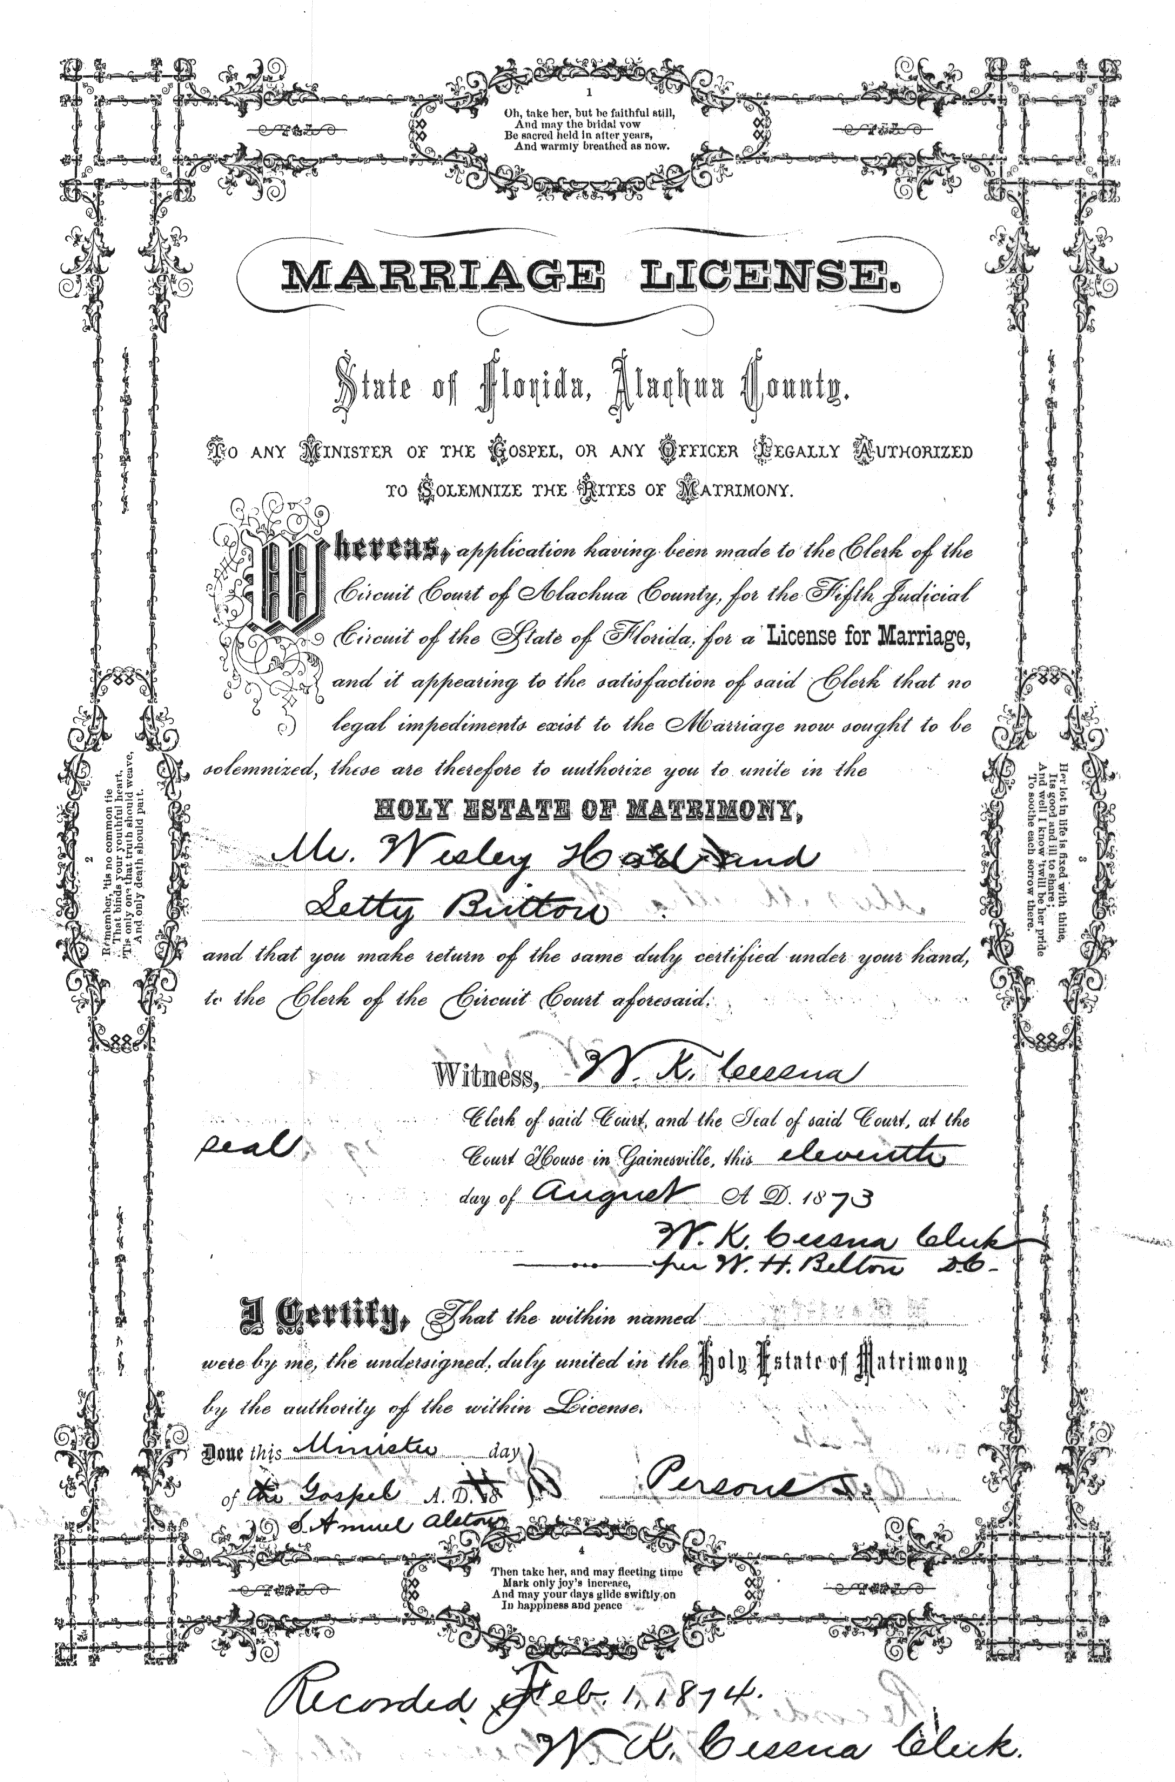 1
Oh, take her, but be faithful still,
And may the bridal vow
Be sacred held in after years,
And warmly breathed as now.
MARRIAGE LICENSE.
State of Florida, Alachua County.
TO ANY MINISTER OF THE GOSPEL, OR ANY OFFICER LEGALLY AUTHORIZED
TO SOLEMNIZE THE RITES OF MATRIMONY.
Whereas, application having been made to the Clerk of the
Circuit Court of Alachua County, for the Fifth Judicial
Circuit of the State of Florida, for a License for Marriage,
and it appearing to the satisfaction of said Clerk that no
legal impediments exist to the Marriage now sought to be
solemnized, these are therefore to authorize you to unite in the
HOLY ESTATE OF MATRIMONY,
Mr. Wesley and
Letty Britton
and that you make return of the same duly certified under your hand,
to the Clerk of the Circuit Court aforesaid.
Witness, W. K. Cessna
Clerk of said Court, and the Seal of said Court, at the
seal
Court House in Gainesville, this eleventh
day of August A D. 1873
W. K. Cessna Clerk
per W. H. Belton D.C.
I Certify, That the within named
were by me, the undersigned, duly united in the Holy Estate of Matrimony
by the authority of the within License.
Done this Minister day
of the Gospel A. D. 18
Persons
Samuel Alston
2
Remember, 'tis no common tie
That binds your youthful heart,
'Tis only one that truth should weave,
And only death should part.
3
Her lot in life is fixed with thine,
Its good and ill to share;
And well I know 'twill be her pride
To soothe each sorrow there.
4
Then take her, and may fleeting time
Mark only joy's increase,
And may your days glide swiftly on
In happiness and peace
Recorded Feb. 1, 1874.
W. K. Cessna Clerk.